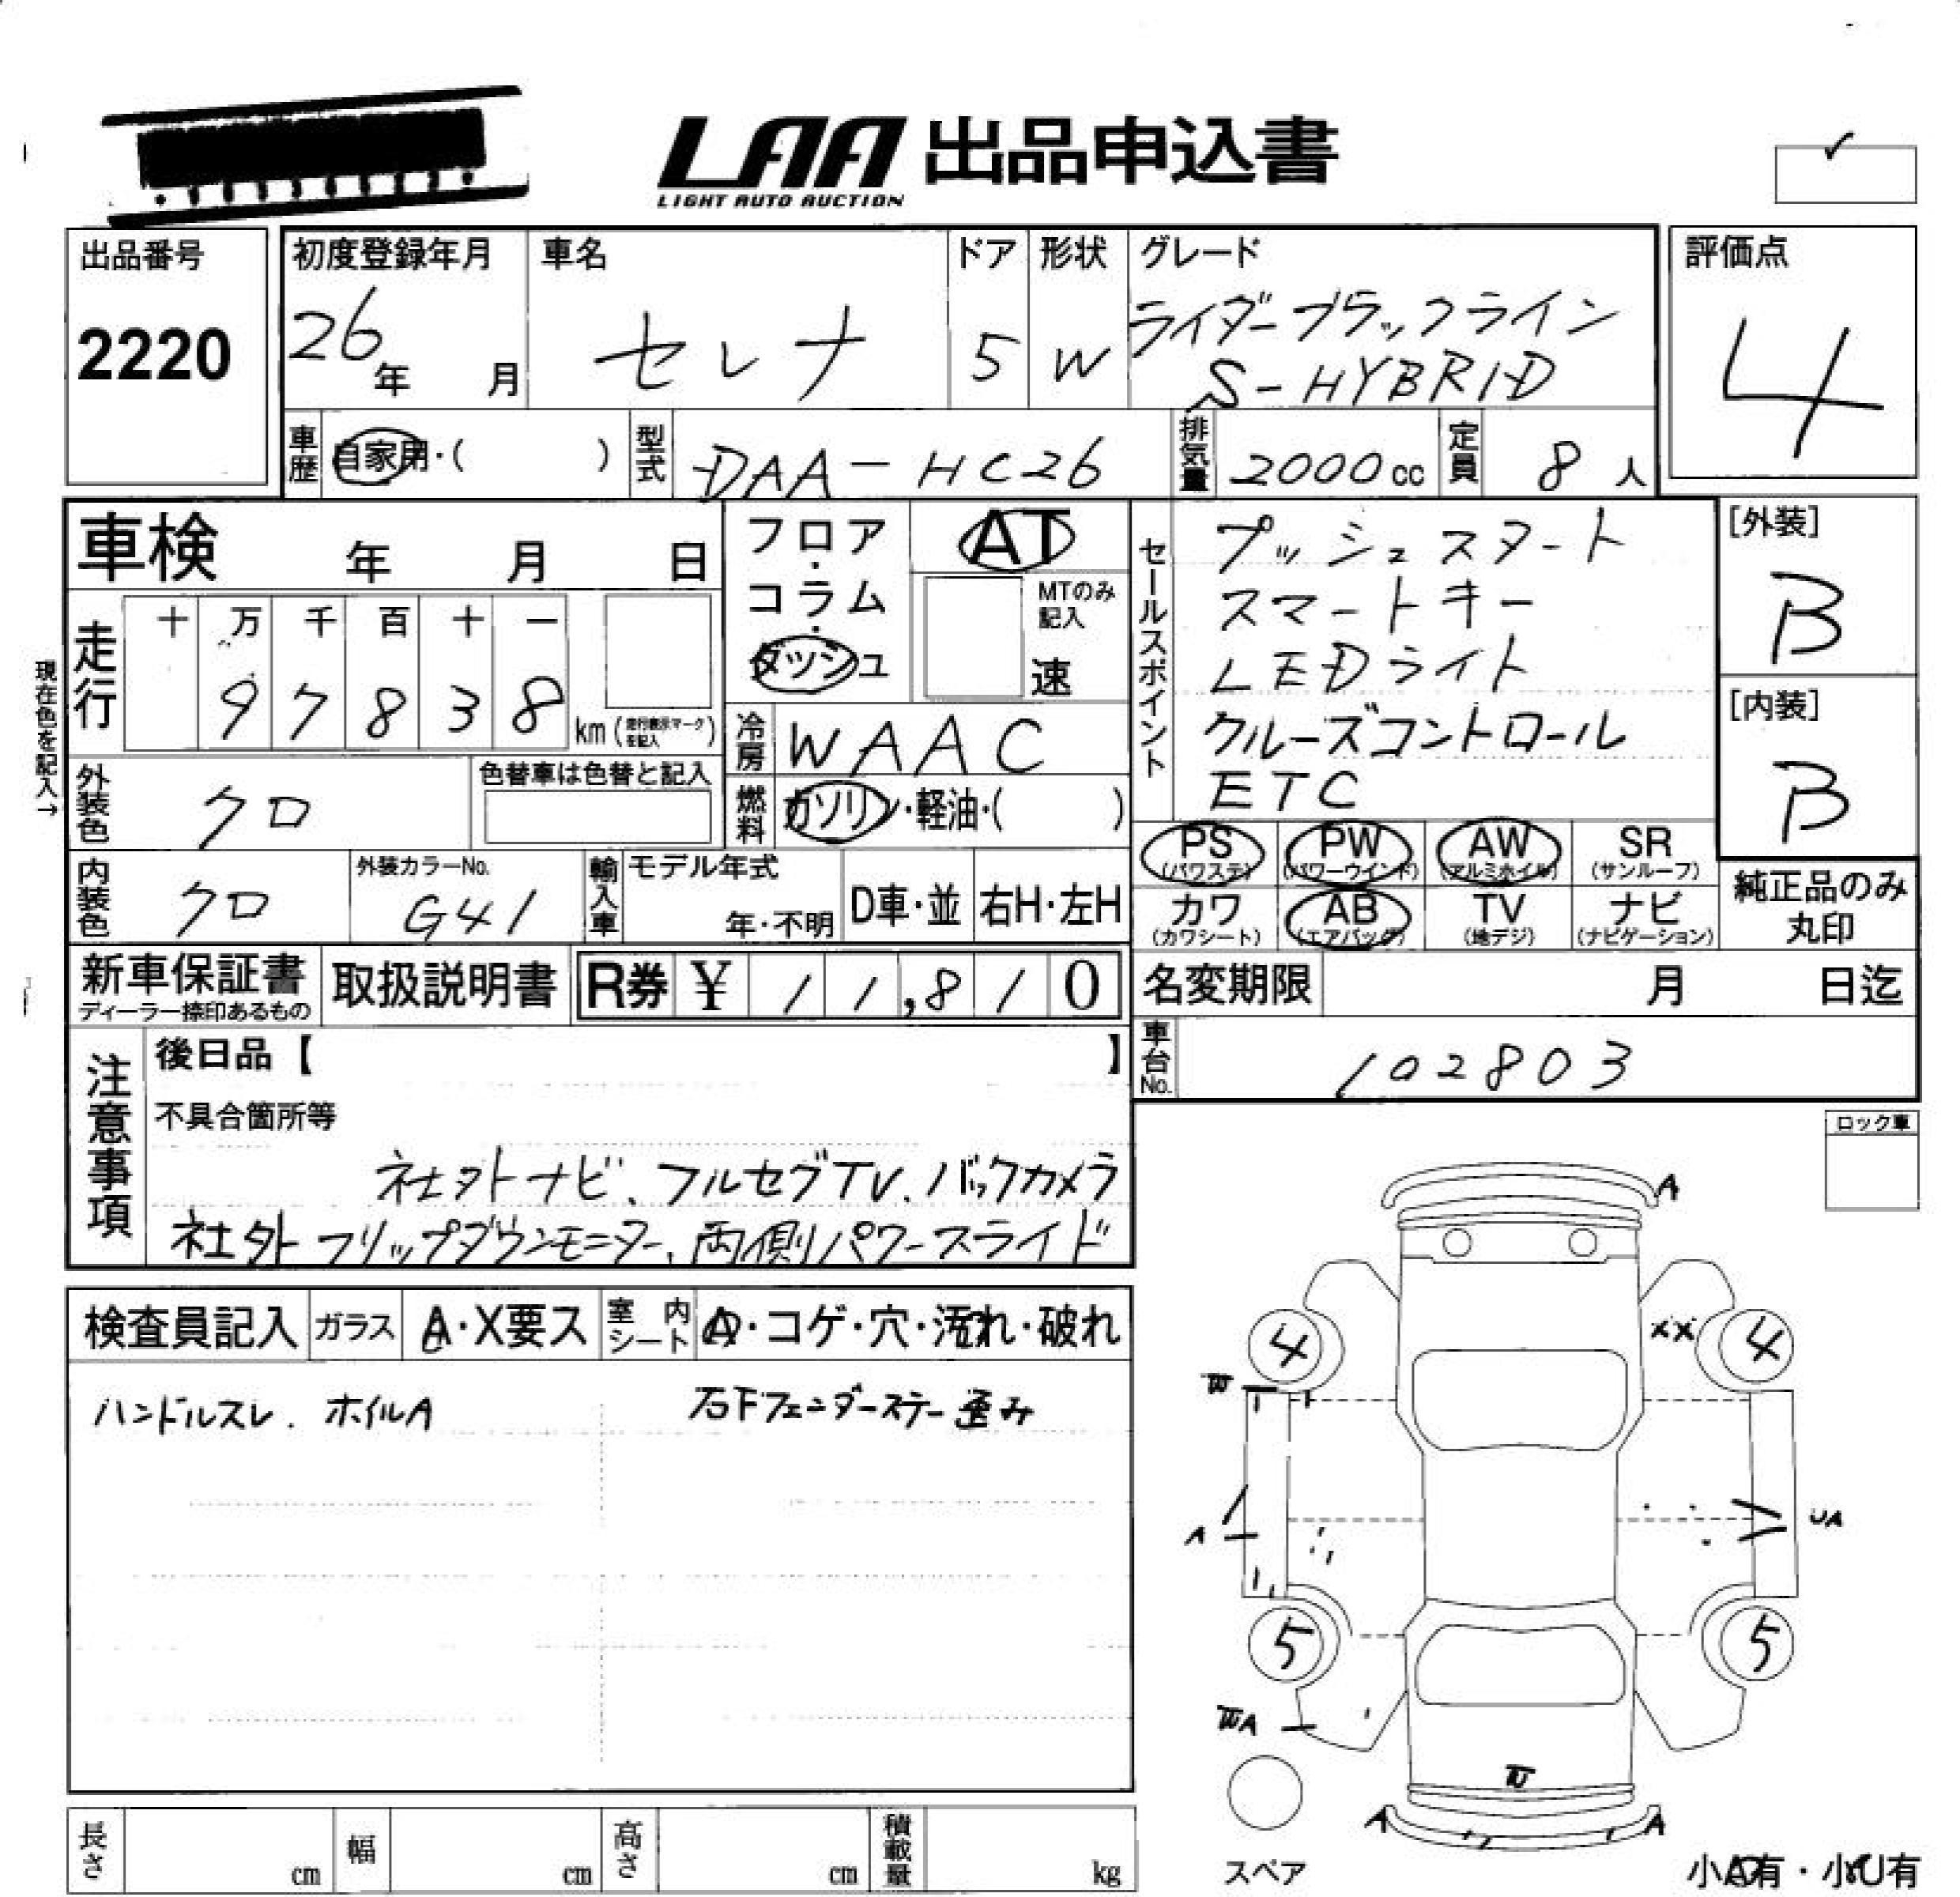 LAA 出品申込書
LIGHT AUTO AUCTION
出品番号
2220
初度登録年月
26年 月
車名
セレナ
ドア
5
形状
W
グレード
ライダーブラックライン
S-HYBRID
評価点
4
車歴 自家用・( )
型式 DAA-HC26
排気量 2000cc
定員 8人
車検 年 月 日
現在色を記入→
走行
十 万 千 百 十 一
9 7 8 3 8 km(走行表示マークを記入)
フロア・コラム・ダッシュ
AT
MTのみ記入
速
冷房 WAAC
燃料 ガソリン・軽油・( )
セールスポイント
プッシュスタート
スマートキー
LEDライト
クルーズコントロール
ETC
[外装]
B
[内装]
B
外装色 クロ
色替車は色替と記入
内装色 クロ
外装カラーNo.
G41
輸入車
モデル年式
年・不明
D車・並
右H・左H
PS (パワステ)
PW (パワーウインド)
AW (アルミホイル)
SR (サンルーフ)
カワ (カワシート)
AB (エアバッグ)
TV (地デジ)
ナビ (ナビゲーション)
純正品のみ丸印
新車保証書
ディーラー捺印あるもの
取扱説明書
R券 ¥ 11,810
名変期限 月 日迄
車台No. 102803
注意事項
後日品【 】
不具合箇所等
社外ナビ、フルセグTV、バックカメラ
社外フリップダウンモニター、両側パワースライド
ロック車
検査員記入
ガラス A・X要ス
室内シート A・コゲ・穴・汚れ・破れ
ハンドルスレ、ホイルA
右Fフェンダーステー歪み
A
4 XX 4
W
A UA
5 5
WA
W
A A
スペア
小A有・小U有
長さ cm
幅 cm
高さ cm
積載量 kg